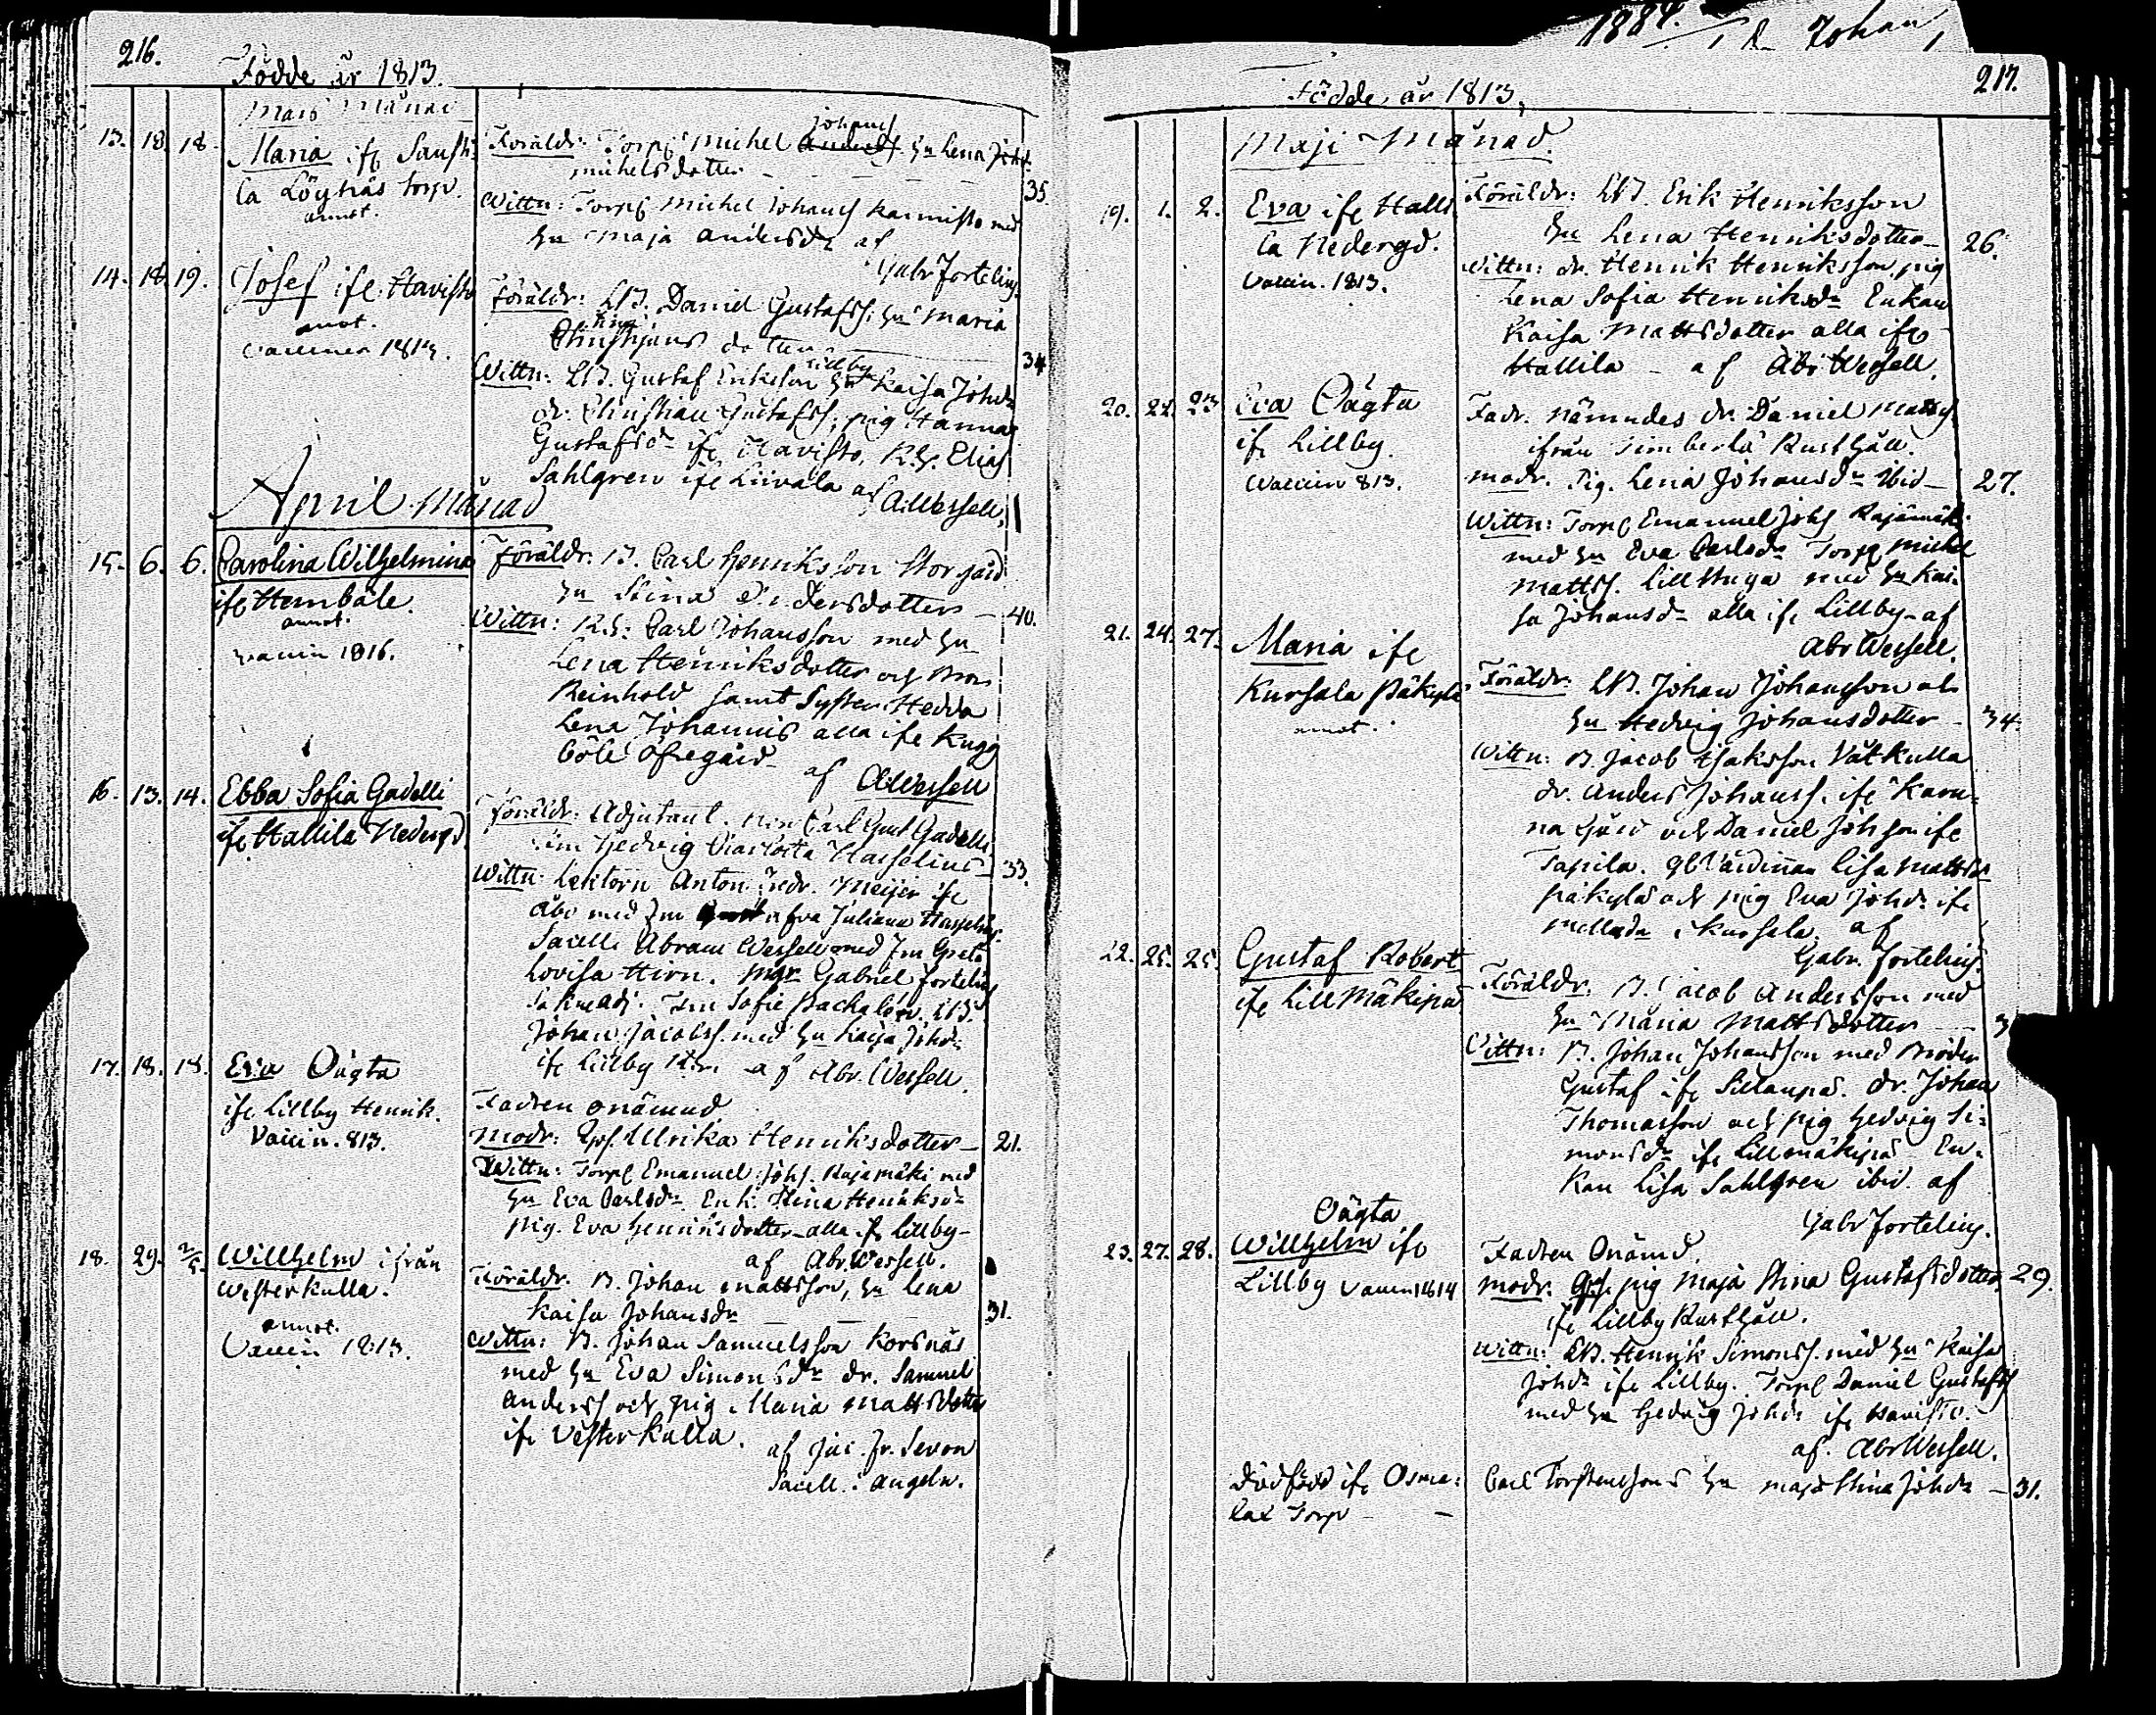 216.
Födde år 1813.
Mars Månad
13. 18. 18.
Maria ifr Saush:
la Löynäs torp.
annot.
Föräldr: Torp. Michel Johanss Anderss hu Lena
Michelsdotter
35.
Wittn: Torp. Michel Johanss Karnisto med
hu Maja Andersdr af
Gabr Fortelius.
14. 18. 19.
Josef ifr Havisto
annot.
Vaccinen 1813.
Föräldr: LB. Daniel Gustafss; hu Maria
Christjans dotter
34
Wittn: LB. Gustaf Eriksson Lillby hu Kaisa Johdr
dr. Christian Gustafss; pig Hanna
Gustafsdr ifr Havisto, R.H. Elias
Sahlgren ifr Liivala af
A:Wessell.
April Månad
15. 6. 6.
Carolina Wilhelmina
ifr Hemböle.
annot.
Vaccin 1816.
Föräldr: B. Carl Henriksson Storgård
hu Stina Andersdotter
40.
Wittn: R.H: Carl Johansson med hu
Lena Henriksdotter och Bror
Reinhold samt Syster Hedda
Lena Johannis alla ifr Kugg
böle Öfregård
af A:Wessell
16. 13. 14.
Ebba Sofia Gadelli
ifr Hallila Nedergd
Föräldr: Adjutant. Carl Gust Gadelli
Hedvig Charlotta Hasselius
33.
Wittn: Lektorn Anton Fredr. Meijer ifr
Åbo med Fru Eva Juliana Hasselius.
Sacell. Abram Wessell med Fru Greta
Lovisa Hirn. Mgr Gabriel Fortelius
Sakmadj. Fru Sofie Pachalén. LB.
Johan Jacobss. med hu Kaija Johdr
ifr Lillby af Abr. Wessell.
17. 18. 18.
Eva Oägta
ifr Lillby Henrik.
Vaccin. 813.
Fadren onämnd
Modr: Ulrika Henriksdotter
21.
Wittn: Torp. Emanuel Johs. Rajamäki med
hu Eva Carlsdr. Enk. Stina Henriksdr
pig. Eva Henriksdotter alla ifr Lillby
af Abr. Wessell.
18. 29. 2/5.
Willhelm ifrån
Westerkulla.
annot.
Vaccin 1813.
Föräldr. B. Johan Mattsson, hu Lena
Kaisa Johansdr
31.
Wittn: B. Johan Samuelsson Korsnäs
med hu Eva Simonsdr dr. Samuel
Anderss och pig Maria Mattsdotter
ifr Vesterkulla. af Jac. Fr. Sevon
Sacell. i Angeln.
1884.
Johan
217.
Födde år 1813,
Maji Månad.
19. 1. 2.
Eva ifr Halli
la Nedergd.
Vaccin. 1813.
Föräldr: LB. Erik Henriksson
hu Lena Henriksdotter
26.
Wittn: dr. Henrik Henriksson, pig
Lena Sofia Henriksdr Enkan
Kaisa Mattsdotter alla ifr
Hallila af Abr Wessell.
20. 22. 23
Eva Oägta
ifr Lillby.
Vaccin 813.
Fadr. nämndes dr. Daniel Matss
ifrån Simberlä Rusthåll.
Modr. Pig. Lena Johansdr Ibid
27.
Wittn: Torp. Emanuel Johs Rajämäki
med hu Eva Carlsdr Torp. Michel
Mattss. Lillstuga med hu Kai=
sa Johansdr alla ifr Lillby af
Abr Wessell.
21. 24. 27.
Maria ifr
Kursala Päkylä
annot.
Föräldr: LB. Johan Johansson
hu Hedvig Johansdotter
34.
Wittn: B. Jacob Isaksson Vätkulla
dr. Anders Johanss. ifr Karu=
na Gård och Daniel Johsson ifr
Tapila. Gl. Värdinnan Lisa Mattsdr
Päkylä och pig Eva Johdr ifr
i Kursala. af
Gabr. Fortelius.
22. 25. 25.
Gustaf Robert
ifr Lill Mäkipä
Föräldr. B. Jacob Andersson med
hu Maria Mattsdotter
3
Wittn: B. Johan Johansson med Broder
Gustaf ifr Sillanpä. dr. Johan
Thomasson och pig Hedvig Si=
monsdr ifr Lillmäkipä En=
kan Lisa Sahlgren ibid. af
Gabr Fortelius.
23. 27. 28.
Oägta
Willhelm ifr
Lillby Vaccin 1814
Fadren Onämd.
Modr: pig Maja Stina Gustafsdotter
29.
ifr Lillby Rusthåll.
Wittn: LB. Henrik Simonss. med hu Kaisa
Johdr ifr Lillby. Torp. Daniel Gustafss
med hu Hedvig Johdr ifr Havisto.
af. Abr Wessell.
Dödfödd ifr Osma=
lax Torp
Carl Torstenssons hu Maja Stina Johdr
31.